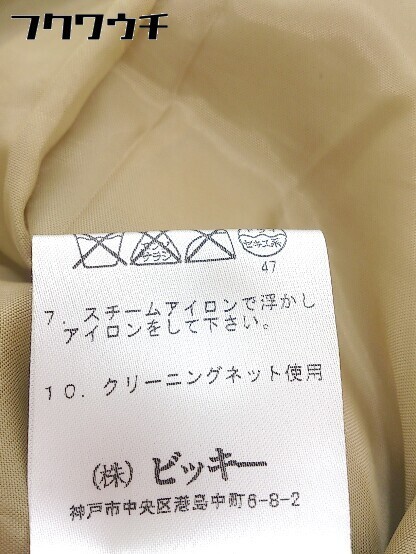 フクワウチ
エンソ
サラシ
セキユ系
47
7. スチームアイロンで浮かし
アイロンをして下さい。
10. クリーニングネット使用
(株) ビッキー
神戸市中央区港島中町6-8-2